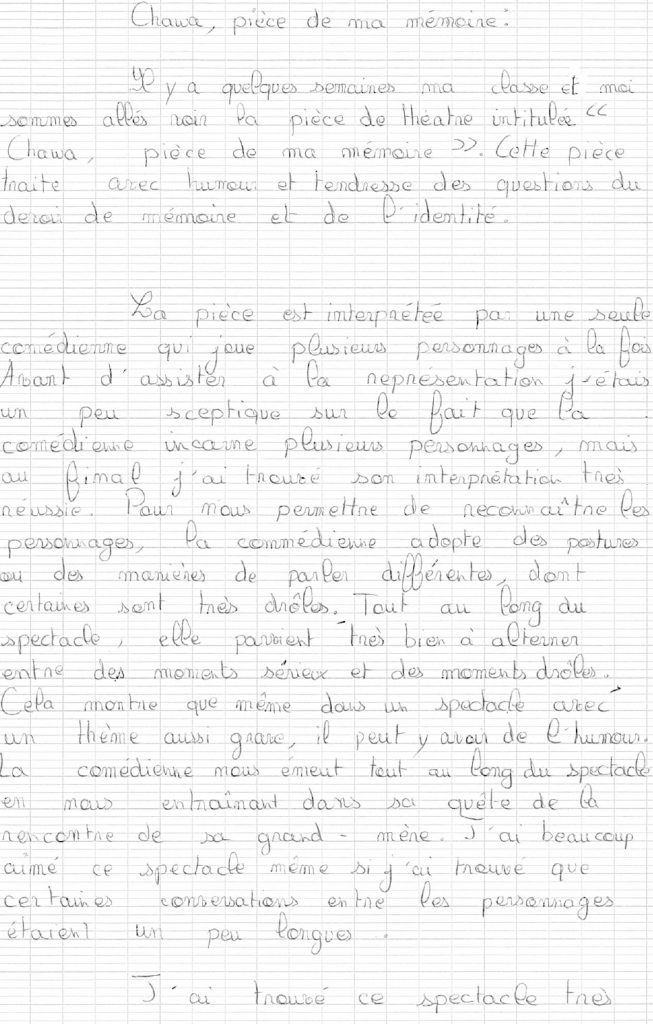 Chawa, pièce de ma mémoire :
Il y a quelques semaines ma classe et moi
sommes allés voir la pièce de théatre intitulée <<
Chawa, pièce de ma mémoire >>. Cette pièce
traite avec humour et tendresse des questions du
devoir de mémoire et de l'identité.
La pièce est interprétée par une seule
comédienne qui joue plusieurs personnages à la fois
Avant d'assister à la représentation j'étais
un peu sceptique sur le fait que la
comédienne incarne plusieurs personnages, mais
au final j'ai trouvé son interprétation très
réussie. Pour nous permettre de reconnaître les
personnages, la commédienne adopte des postures
ou des manières de parler différentes, dont
certaines sont très drôles. Tout au long du
spectacle, elle parvient très bien à alterner
entre des moments sérieux et des moments drôles.
Cela montre que même dans un spectacle avec
un thème aussi grave, il peut y avoir de l'humour.
La comédienne nous émeut tout au long du spectacle
en nous entraînant dans sa quête de la
rencontre de sa grand-mère. J'ai beaucoup
aimé ce spectacle même si j'ai trouvé que
certaines conversations entre les personnages
étaient un peu longues.
J'ai trouvé ce spectacle très